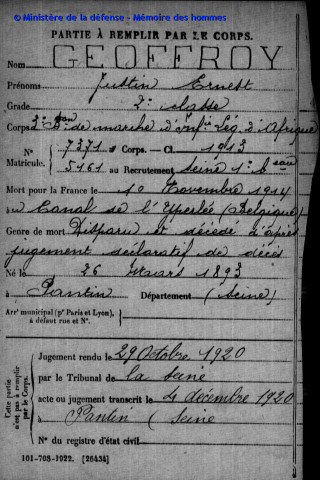 © Ministère de la défense - Mémoire des hommes
PARTIE À REMPLIR PAR LE CORPS.
Nom GEOFFROY
Prénoms Justin Ernest
Grade 2e classe
Corps 3e Bton de marche d'Infie Lég. d'Afrique
N° 7371 au Corps. — Cl. 1913
Matricule. 5161 au Recrutement Seine 1er Beau
Mort pour la France le 10 Novembre 1914
à Canal de l'Yperlée (Belgique)
Genre de mort Disparu et décédé d'après
jugement déclaratif de décès
Né le 26 Mars 1893
à Pantin Département (Seine)
Arrt municipal (pr Paris et Lyon), à défaut rue et N°.
Cette partie n'est pas à remplir par le Corps.
Jugement rendu le 29 Octobre 1920
par le Tribunal de la Seine
acte ou jugement transcrit le 4 décembre 1920
à Pantin (Seine
N° du registre d'état civil
101-708-1922. [26434]